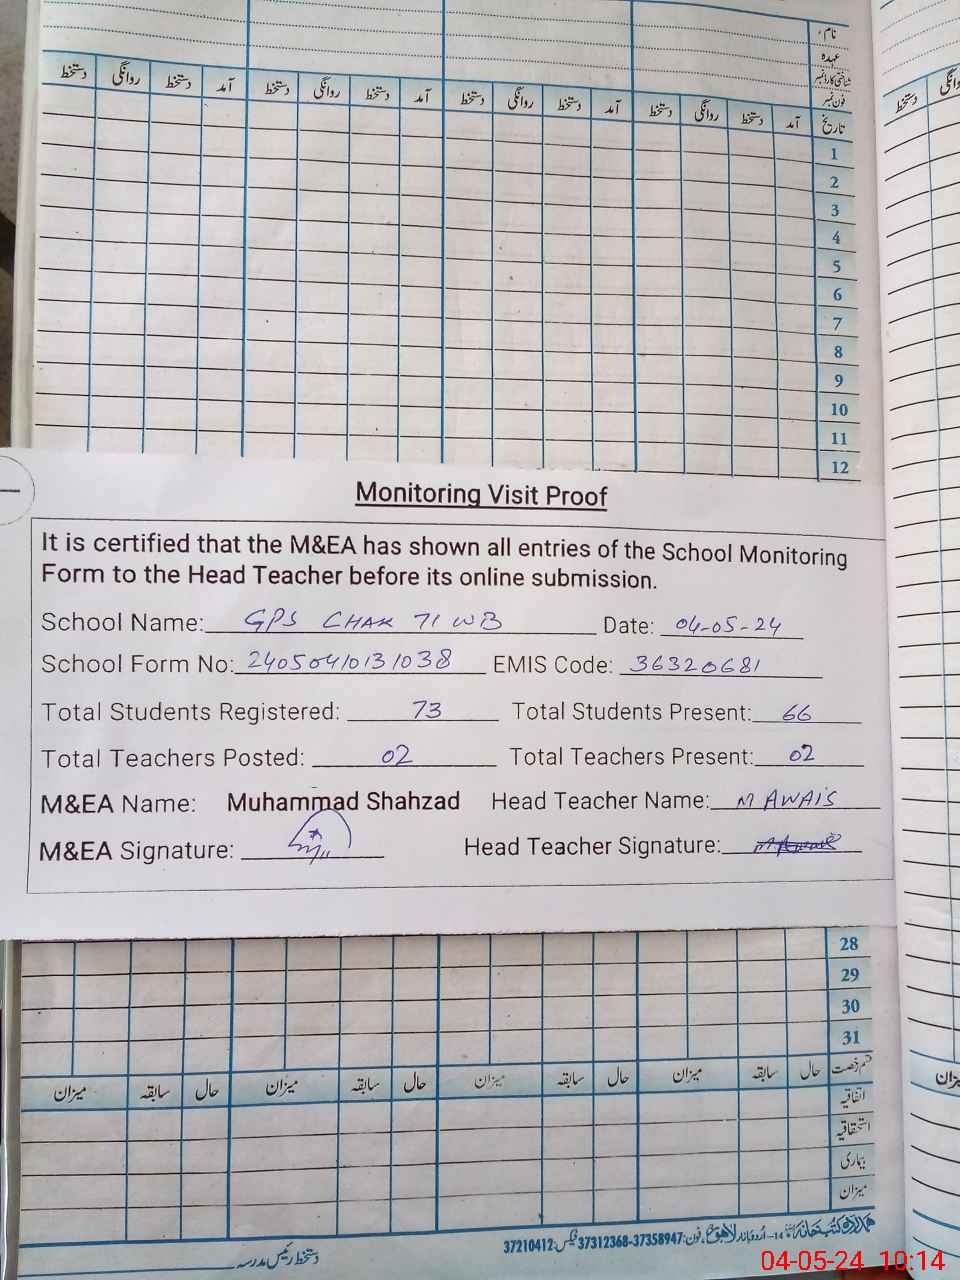 نام
عہدہ
شناختی کارڈ نمبر
فون نمبر
تاریخ آمد دستخط روانگی دستخط آمد دستخط روانگی دستخط آمد دستخط روانگی دستخط آمد دستخط روانگی دستخط
روانگی دستخط
1
2
3
4
5
6
7
8
9
10
11
12
Monitoring Visit Proof
It is certified that the M&EA has shown all entries of the School Monitoring
Form to the Head Teacher before its online submission.
School Name: GPS CHAK 71 WB Date: 04-05-24
School Form No: 24050410131038 EMIS Code: 36320681
Total Students Registered: 73 Total Students Present: 66
Total Teachers Posted: 02 Total Teachers Present: 02
M&EA Name: Muhammad Shahzad Head Teacher Name: M AWAIS
M&EA Signature: Head Teacher Signature:
28
29
30
31
قسم رخصت حال سابقہ میزان حال سابقہ میزان حال سابقہ میزان حال سابقہ میزان
اتفاقیہ
استحقاقیہ
بیماری
میزان
ہمدرد کتب خانہ 14-اُردو بازار لاہور، فون:37358947-37312368 فیکس:37210412
دستخط رئیس مدرسہ
04-05-24 10:14